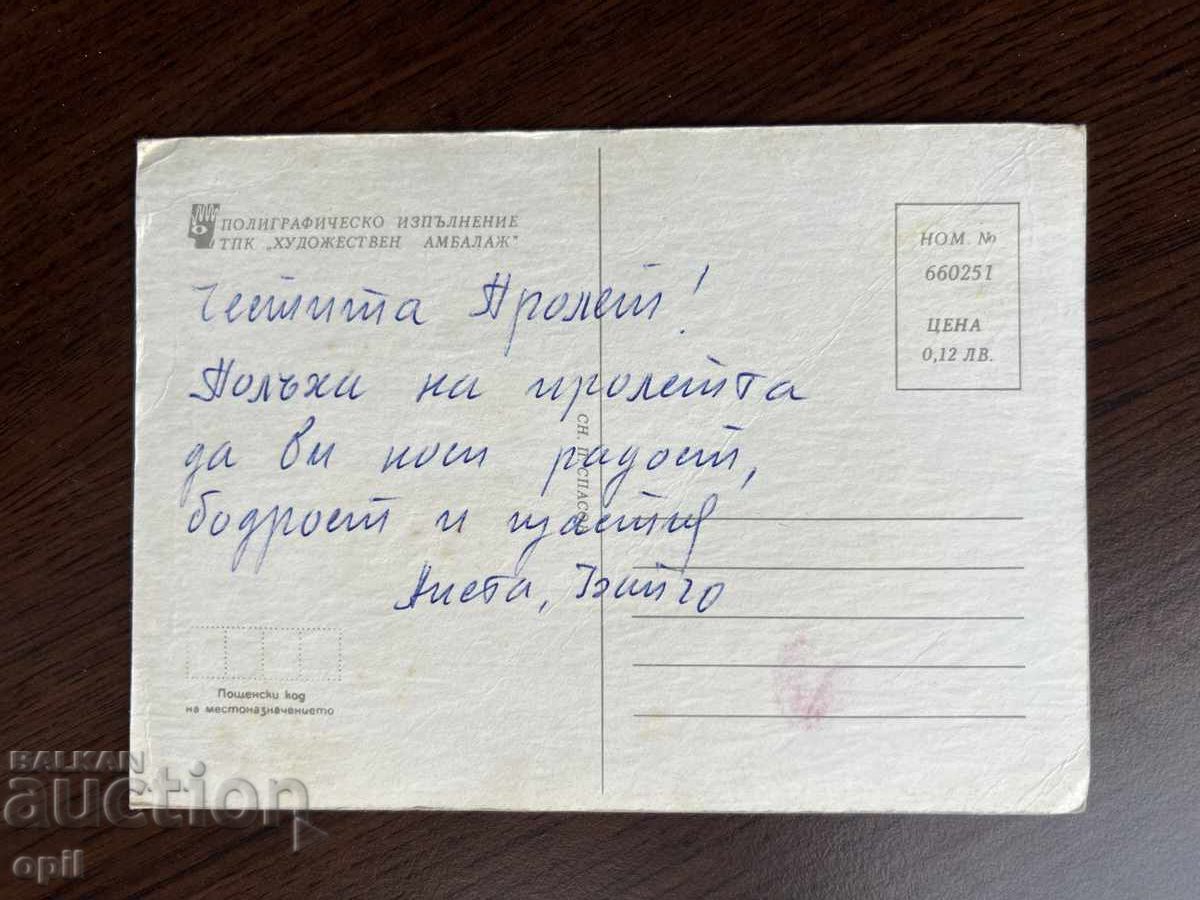 ПОЛИГРАФИЧЕСКО ИЗПЪЛНЕНИЕ
ТПК „ХУДОЖЕСТВЕН АМБАЛАЖ"
Честита Пролет!
Полъха на пролетта
да ви носи радост,
бодрост и щастие
Анета,
НОМ. №
660251
ЦЕНА
0,12 ЛВ.
СН. П. СПАСОВ
Пощенски код
на местоназначението
BALKAN
auction
opil